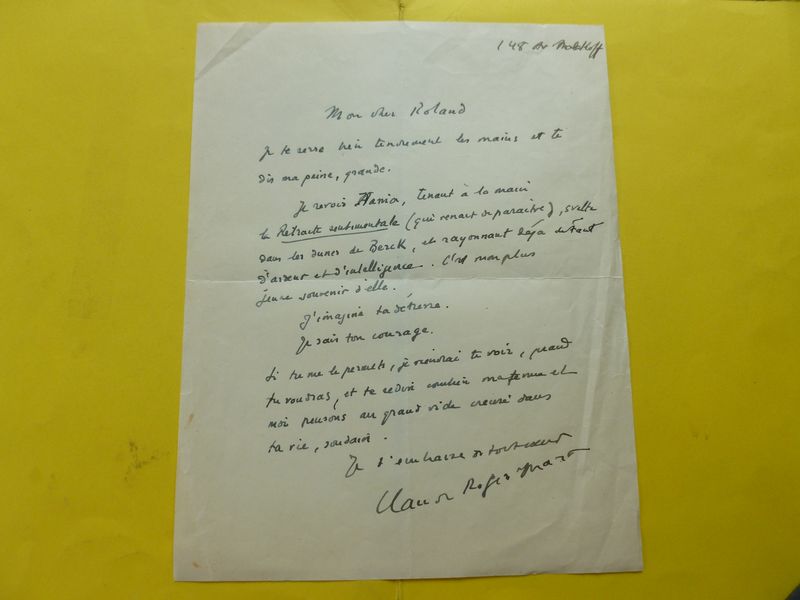 148 Av Malakoff
Mon cher Roland
Je te serre bien tendrement les mains et te
dis ma peine, grande.
Je revois Hania, tenant à la main
la Retraite sentimentale (qui venait de paraître), svelte
dans les dunes de Berck, et rayonnant déjà de tant
d'ardeur et d'intelligence. C'est mon plus
jeune souvenir d'elle.
J'imagine ta détresse.
Je sais ton courage.
Si tu me le permets, je viendrai te voir, quand
tu voudras, et te redire combien ma femme et
moi pensons au grand vide creusé dans
ta vie, soudain.
Je t'embrasse de tout cœur
Claude Roger Marx